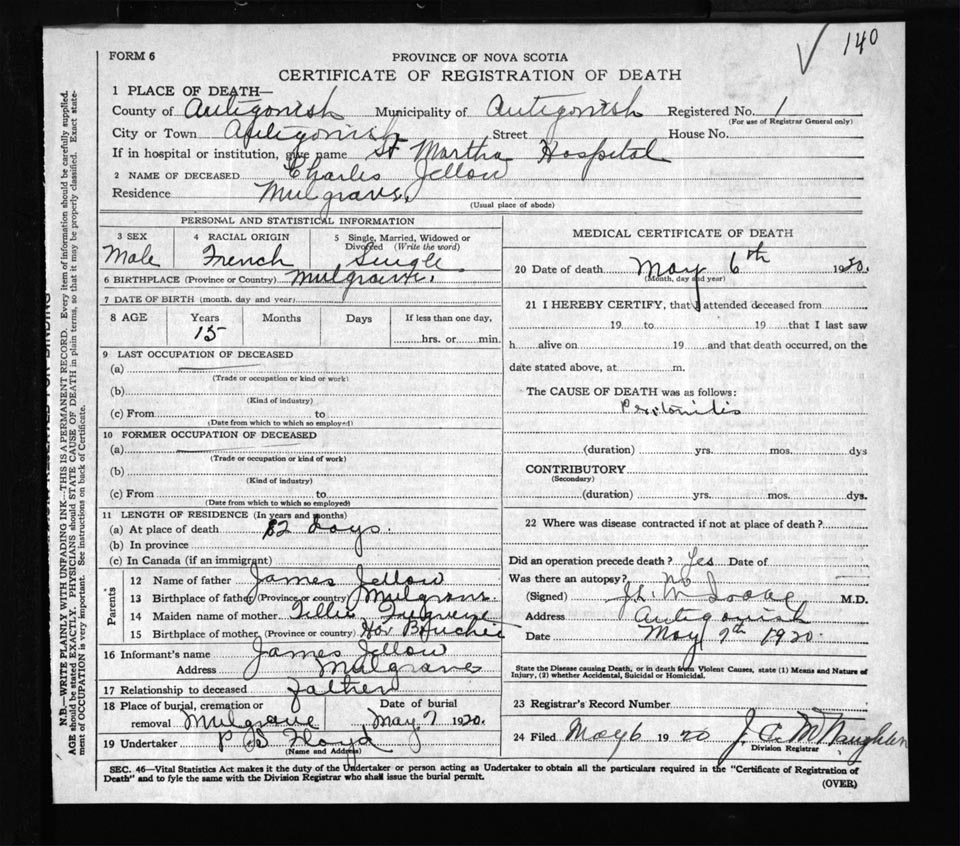 140
FORM 6
PROVINCE OF NOVA SCOTIA
CERTIFICATE OF REGISTRATION OF DEATH
1 PLACE OF DEATH—
County of Antigonish Municipality of Antigonish Registered No. 1
(For use of Registrar General only)
City or Town Antigonish Street House No.
If in hospital or institution, give name St Martha Hospital
2 NAME OF DECEASED Charles Jellow
Residence Mulgrave
(Usual place of abode)
PERSONAL AND STATISTICAL INFORMATION
3 SEX 4 RACIAL ORIGIN 5 Single, Married, Widowed or Divorced (Write the word)
Male French Single
6 BIRTHPLACE (Province or Country) Mulgrave
7 DATE OF BIRTH (month, day and year)
8 AGE Years Months Days If less than one day,
15 hrs. or min.
9 LAST OCCUPATION OF DECEASED
(a)
(Trade or occupation or kind or work)
(b)
(Kind of industry)
(c) From to
(Date from which to which so employed)
10 FORMER OCCUPATION OF DECEASED
(a)
(Trade or occupation or kind of work)
(b)
(Kind of industry)
(c) From to
(Date from which to which so employed)
11 LENGTH OF RESIDENCE (In years and months)
(a) At place of death 12 days.
(b) In province
(c) In Canada (if an immigrant)
Parents
12 Name of father James Jellow
13 Birthplace of father (Province or country) Mulgrave
14 Maiden name of mother Tillie
15 Birthplace of mother (Province or country) Hav Bouchie
16 Informant's name James Jellow
Address Mulgrave
17 Relationship to deceased father
18 Place of burial, cremation or removal Mulgrave
Date of burial May 7 1920.
19 Undertaker P S Floyd
(Name and Address)
MEDICAL CERTIFICATE OF DEATH
20 Date of death May 6th 1920.
(Month, day and year)
21 I HEREBY CERTIFY, that I attended deceased from
19 to 19 that I last saw
h alive on 19 and that death occurred, on the
date stated above, at m.
The CAUSE OF DEATH was as follows:
Peritonitis
(duration) yrs. mos. dys
CONTRIBUTORY
(Secondary)
(duration) yrs. mos. dys.
22 Where was disease contracted if not at place of death?
Did an operation precede death? Yes Date of
Was there an autopsy? No
(Signed) M.D.
Address Antigonish
Date May 7th 1920.
State the Disease causing Death, or in death from Violent Causes, state (1) Means and Nature of
Injury, (2) whether Accidental, Suicidal or Homicidal.
23 Registrar's Record Number
24 Filed May 6 1920 J. C. McNaughton
Division Registrar
SEC. 46—Vital Statistics Act makes it the duty of the Undertaker or person acting as Undertaker to obtain all the particulars required in the "Certificate of Registration of
Death" and to fyle the same with the Division Registrar who shall issue the burial permit.
(OVER)
N.B.—WRITE PLAINLY WITH UNFADING INK—THIS IS A PERMANENT RECORD. Every item of information should be carefully supplied.
AGE should be stated EXACTLY. PHYSICIANS should STATE CAUSE OF DEATH in plain terms, so that it may be properly classified. Exact state-
ment of OCCUPATION is very important. See instructions on back of Certificate.